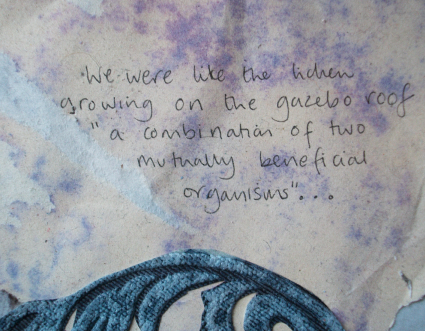 We were like the lichen
growing on the gazebo roof
"a combination of two
mutually beneficial
organisms"...